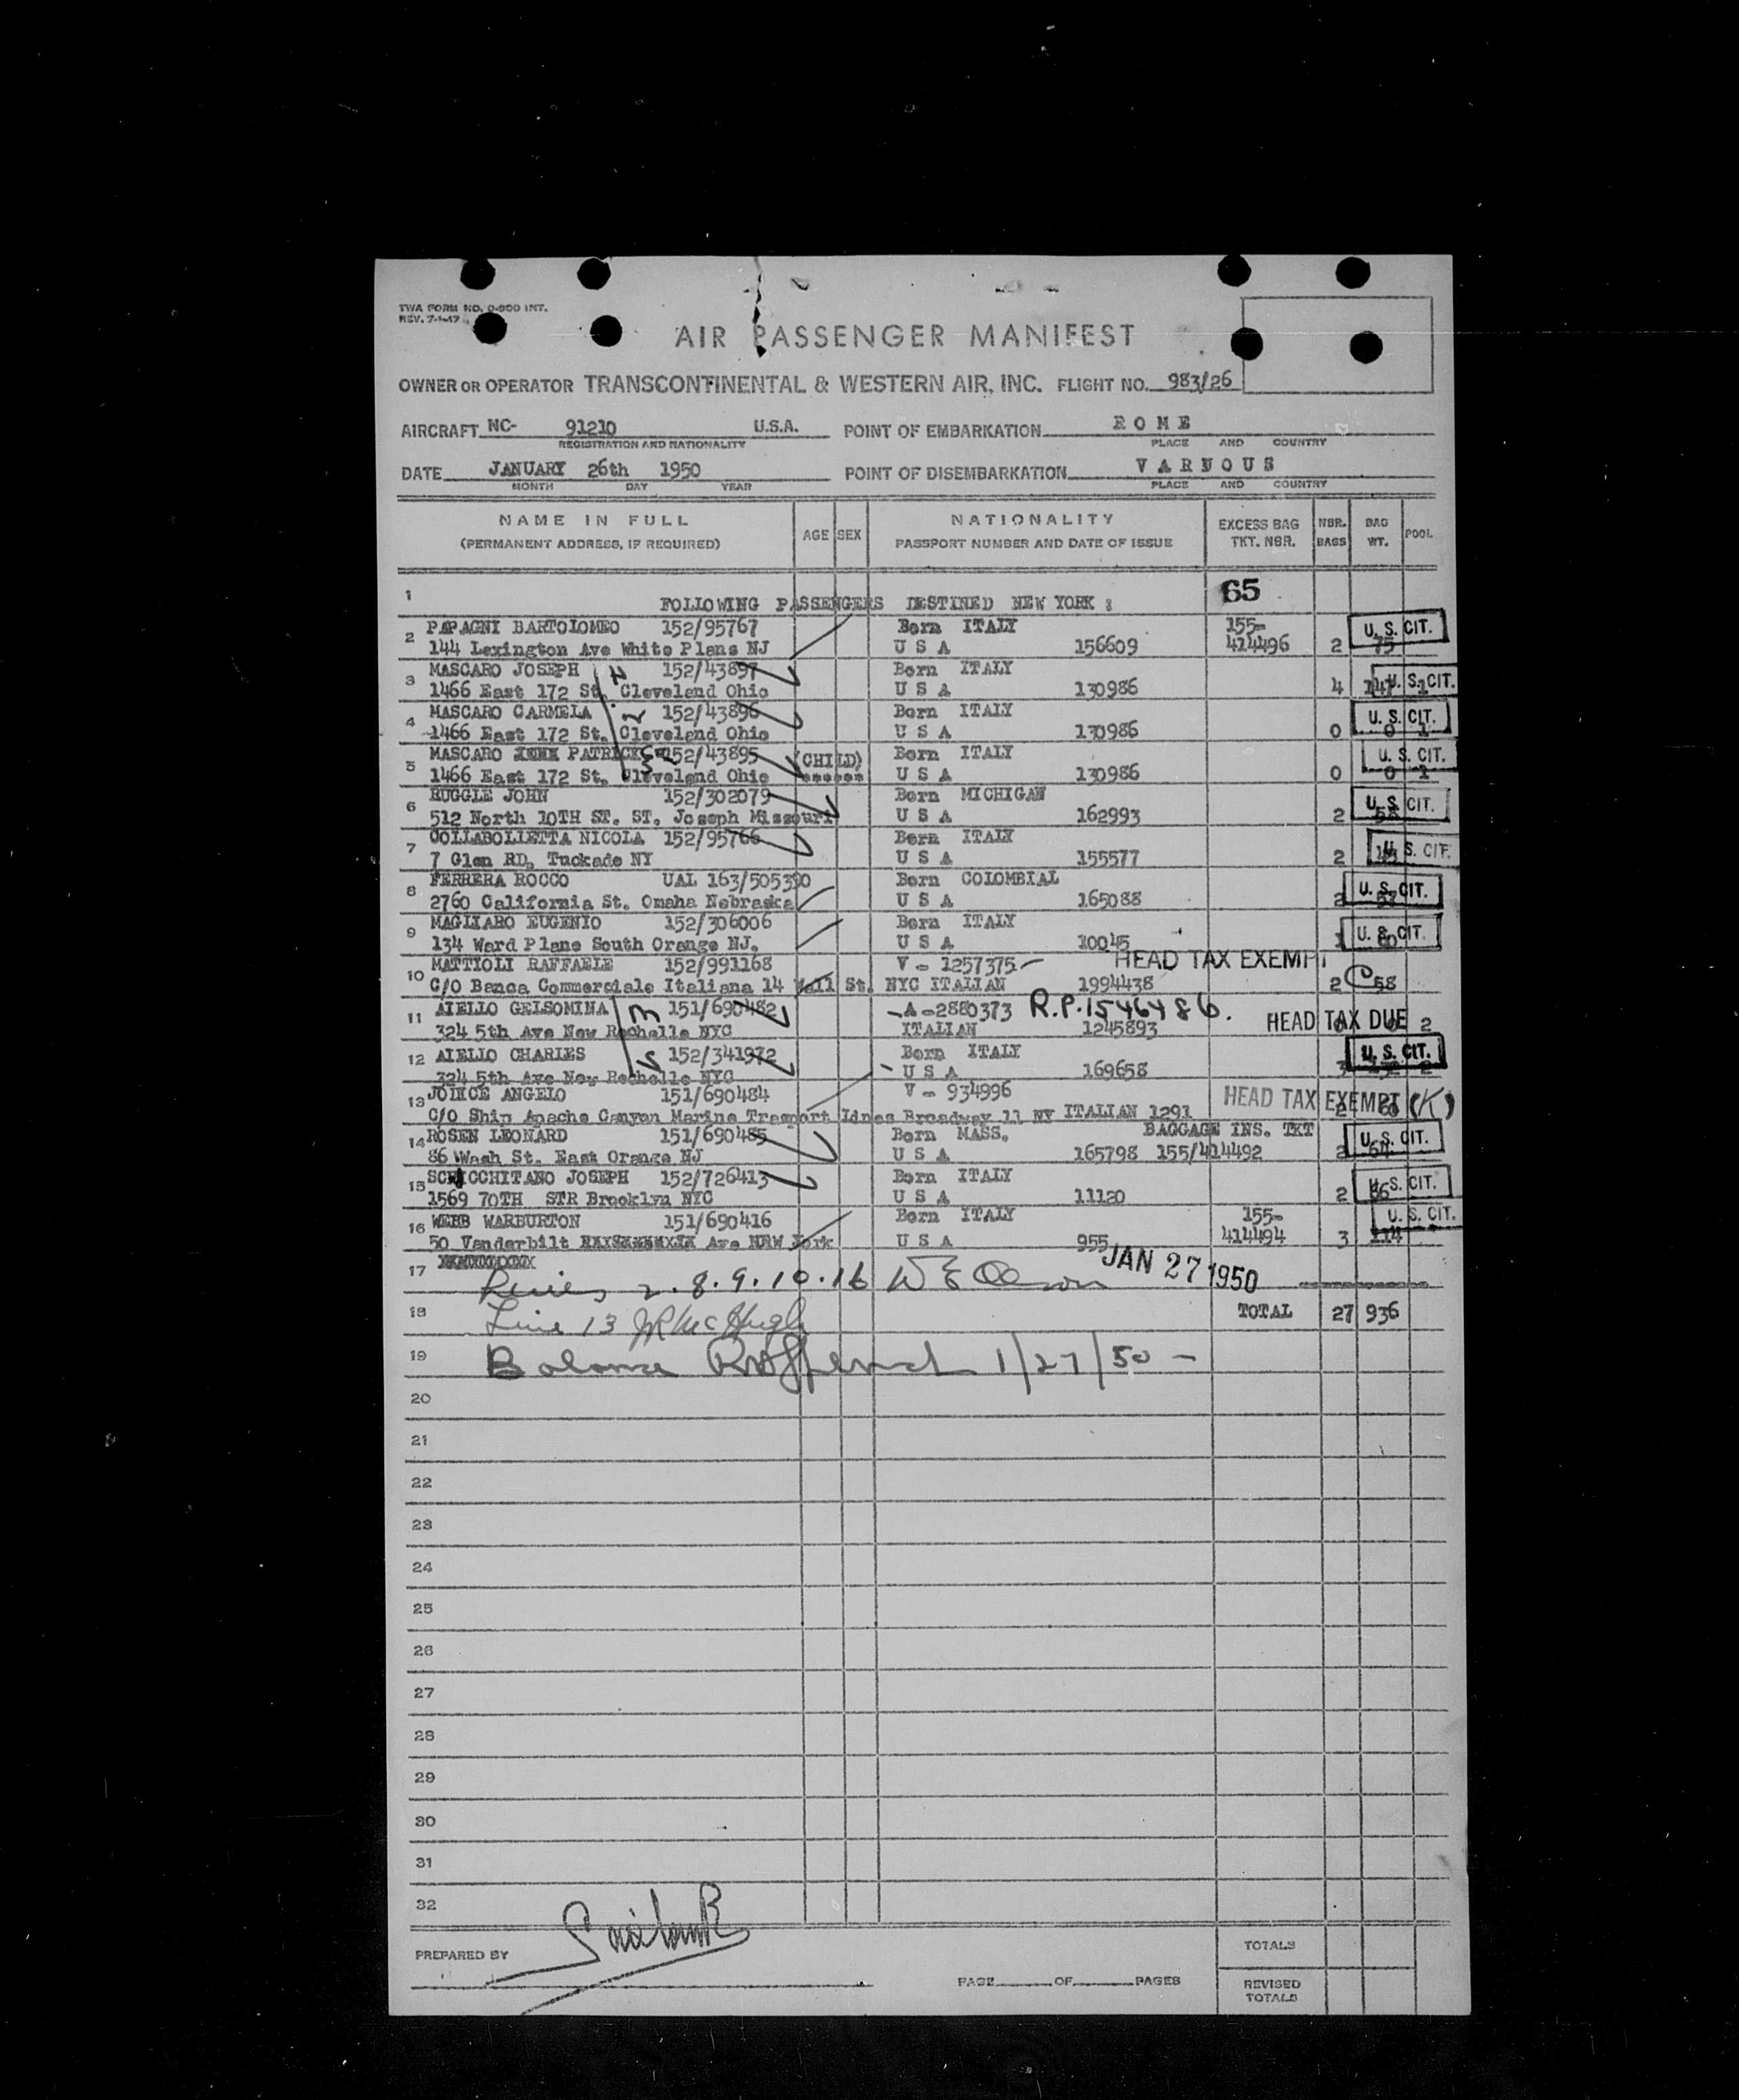 TWA FORM NO. 0-900 INT.
REV. 7-1-47
AIR PASSENGER MANIFEST
OWNER OR OPERATOR TRANSCONTINENTAL & WESTERN AIR, INC. FLIGHT NO. 983/26
AIRCRAFT NC- 91210 U.S.A. POINT OF EMBARKATION ROME
REGISTRATION AND NATIONALITY PLACE AND COUNTRY
DATE JANUARY 26th 1950 POINT OF DISEMBARKATION VARNOUS
MONTH DAY YEAR PLACE AND COUNTRY
NAME IN FULL (PERMANENT ADDRESS, IF REQUIRED) AGE SEX NATIONALITY PASSPORT NUMBER AND DATE OF ISSUE EXCESS BAG TKT. NBR. NBR. BAGS BAG WT. POOL
1 FOLLOWING PASSENGERS DESTINED NEW YORK : 65
2 PAPAGNI BARTOLOMEO 152/95767 Born ITALY 155- U. S. CIT.
144 Lexington Ave White Plans NJ U S A 156609 414496 2 75
3 MASCARO JOSEPH 152/43897 Born ITALY
1466 East 172 St. Cleveland Ohio U S A 130986 4 U. S. CIT.
4 MASCARO CARMELA 152/43896 Born ITALY U. S. CIT.
1466 East 172 St. Cleveland Ohio U S A 130986 0 0 1
5 MASCARO PATRICK 152/43895 (CHILD) Born ITALY U. S. CIT.
1466 East 172 St. Cleveland Ohio ****** U S A 130986 0 0 1
6 RUGGLE JOHN 152/302079 Born MICHIGAN U. S. CIT.
512 North 10TH ST. ST. Joseph Missouri U S A 162993 2
7 COLLABOLLETTA NICOLA 152/95766 Born ITALY
7 Glen RD, Tuckade NY U S A 155577 2 U. S. CIT.
8 FERRERA ROCCO UAL 163/505390 Born COLOMBIAL U. S. CIT.
2760 California St. Omaha Nebraska U S A 165088 2
9 MAGLIARO EUGENIO 152/306006 Born ITALY
134 Ward Plane South Orange NJ. U S A 10045 1 U. S. CIT.
10 MATTIOLI RAFFAELE 152/991168 V - 1257375 HEAD TAX EXEMPT
C/O Banca Commerciale Italiana 14 Wall St. NYC ITALIAN 1994438 2 C 58
11 AIELLO GELSOMINA 151/690482 A-2880373 R.P.1546486. HEAD TAX DUE
324 5th Ave New Rochelle NYC ITALIAN 1245893 2
12 AIELLO CHARLES 152/341972 Born ITALY U. S. CIT.
324 5th Ave New Rochelle NYC U S A 169658 3 2
13 JODICE ANGELO 151/690484 V - 934996 HEAD TAX EXEMPT (K)
C/O Ship Apache Canyon Marine Trasport Lines Broadway 11 NY ITALIAN 1291
14 ROSEN LEONARD 151/690485 Born MASS. BAGGAGE INS. TKT U. S. CIT.
86 Wash St. East Orange NJ U S A 165798 155/414492 2 64
15 SCHICCHITANO JOSEPH 152/726413 Born ITALY U. S. CIT.
1569 70TH STR Brooklyn NYC U S A 11120 2 86
16 WEBB WARBURTON 151/690416 Born ITALY 155- U. S. CIT.
50 Vanderbilt Ave NEW York U S A 955 414494 3 114
17 Lines 2. 8. 9. 10. 16 W E Olson JAN 27 1950
18 Line 13 JR McHugh TOTAL 27 936
19 Balance 1/27/50 -
20
21
22
23
24
25
26
27
28
29
30
31
32
PREPARED BY
TOTALS
PAGE OF PAGES
REVISED TOTALS